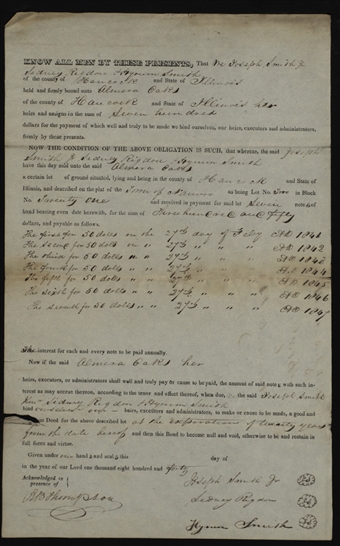 KNOW ALL MEN BY THESE PRESENTS, That We Joseph Smith Jr
Sidney Rigdon & Hyrum Smith
of the county of Hancock and State of Illinois
held and firmly bound unto Almera Oaks
of the county of Hancock and State of Illinois her
heirs and assigns in the sum of Seven hundred
dollars for the payment of which well and truly to be made we bind ourselves, our heirs, executors and administrators,
firmly by these presents.
NOW THE CONDITION OF THE ABOVE OBLIGATION IS SUCH, that whereas, the said Joseph
Smith Jr Sidney Rigdon & Hyrum Smith
have this day sold unto the said Almera Oaks
a certain lot of ground situated, lying and being in the county of Hancock and State of
Illinois, and described on the plat of the Town of Nauvoo as being Lot No. in Block
No. Twenty One and received in payment for said lot Seven notes of
hand bearing even date herewith, for the sum of Three hundred and fifty
dollars, and payable as follows,
The first for 50 dolls on the 27th day of AD 1841
The second for 50 dolls " " 27th AD 1842
The third for 50 dolls " " 27th AD 1843
The fourth for 50 dolls " " 27th AD 1844
The fifth for 50 dolls " " 27th AD 1845
The sixth for 50 dolls " " 27th AD 1846
The seventh for 50 dolls " " 27th AD 1847
The interest for each and every note to be paid annually.
Now if the said Almera Oaks her
heirs, executors, or administrators shall well and truly pay or cause to be paid, the amount of said notes, with such interest as may accrue thereon, according to the tenor and effect thereof, when due, the said Joseph Smith
Sidney Rigdon & Hyrum Smith
bind ourselves our heirs, executors and administrators, to make or cause to be made, a good and
Deed for the above described lot at the expiration of twenty years
from the date hereof and then this Bond to become null and void, otherwise to be and remain in
full force and virtue.
Given under our hands and seals this day of
in the year of our Lord one thousand eight hundred and forty
Acknowledged in
presence of
Joseph Smith Jr
R B Thompson
Sidney Rigdon
Hyrum Smith